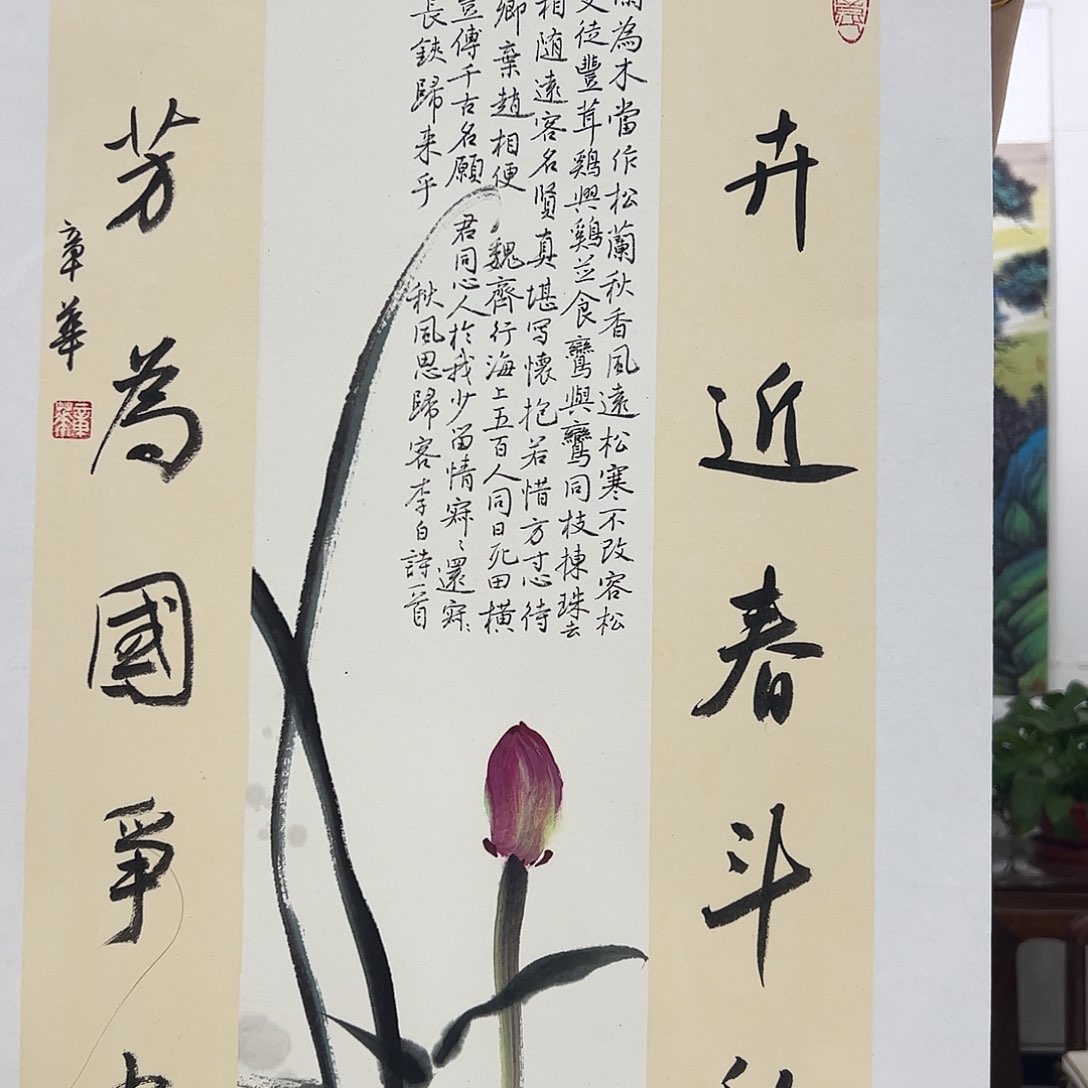 卉近春斗
蘭為木當作松蘭秋香風遠松寒不改容松
豐茸鷄與鷄並食鸞與鸞同枝揀珠去
相随遠客名賢真堪写懷抱若惜方寸心待
卿棄趙相便魏齊行海上五百人同日死田橫
豈傳千古名願君同心人於我少留情寂〻還寂〻
長鋏歸来乎秋風思歸客李白詩一首
芳為國爭
章華